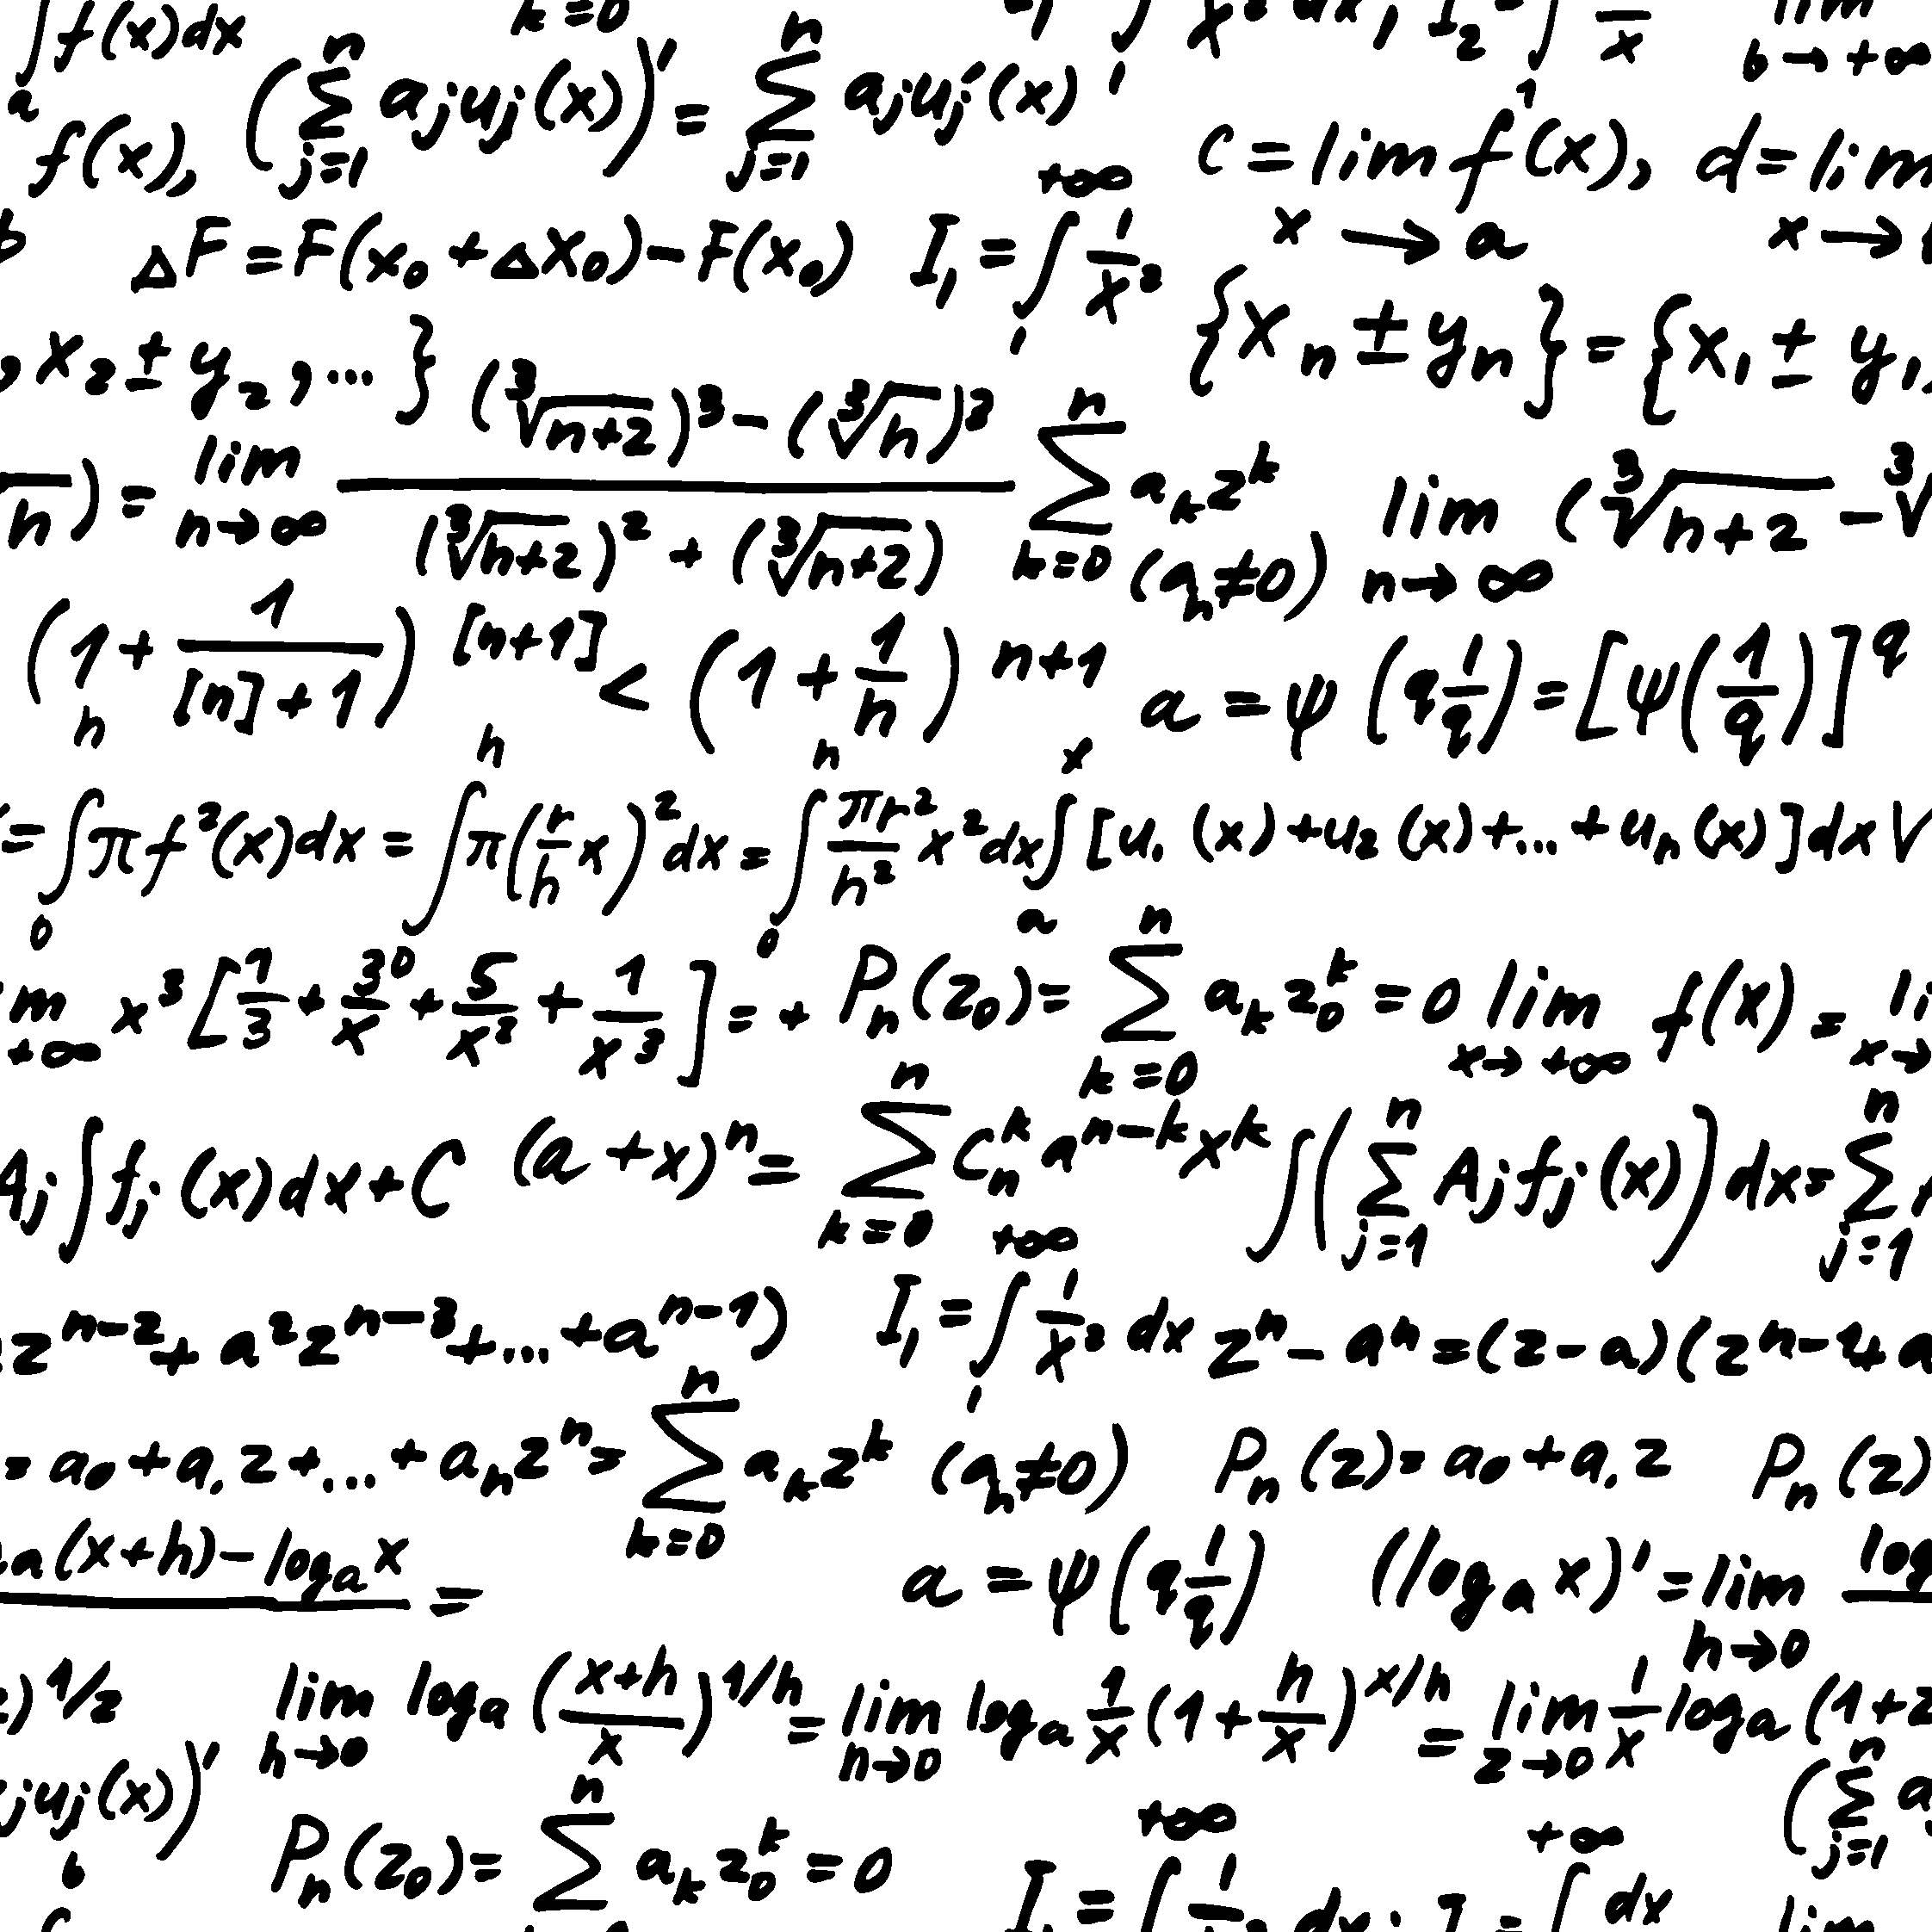 ∫f(x)dx k=0 ∫ x³ dx, I₂ ∫ x lim b→+∞
a f(x), (∑ⁿⱼ₌₁ aⱼuⱼ(x))' = ∑ⁿⱼ₌₁ aⱼuⱼ'(x) ' c=lim f(x), d=lim
x→a x→
ΔF=F(x₀+Δx₀)-F(x₀) I₁=∫₁^{+∞} 1/x³
, x₂±y₂,...} {xₙ±yₙ}={x₁±y₁,
n)= lim n→∞ ((∛(n+2))³-(∛n)³)/((∛(n+2))²+(∛(n+2))) ∑ⁿₖ₌₀ aₖzᵏ (aₙ≠0) lim n→∞ (∛(n+2)-∛
(1+1/([n]+1))^{[n+1]} < (1+1/n)^{n+1} a=ψ(q 1/q)=[ψ(1/q)]^q
=∫₀ʰ πf²(x)dx=∫ʰ π(r/h x)²dx=∫₀ʰ πr²/h² x²dx ∫ₐˣ [u₁(x)+u₂(x)+...+uₙ(x)]dx V
m +∞ x³[1/3+30/x+5/x²+1/x³]=+ Pₙ(z₀)=∑ⁿₖ₌₀ aₖz₀ᵏ=0 lim x→+∞ f(x)= li x→
Aⱼ∫fⱼ(x)dx+C (a+x)ⁿ=∑ⁿₖ₌₀ Cₙᵏaⁿ⁻ᵏxᵏ ∫(∑ⁿⱼ₌₁ Aⱼfⱼ(x))dx=∑ⁿⱼ₌₁
zⁿ⁻²+a²zⁿ⁻³+...+aⁿ⁻¹) I₁=∫₁^{+∞} 1/x³ dx zⁿ-aⁿ=(z-a)(zⁿ⁻¹+a
=a₀+a₁z+...+aₙzⁿ=∑ⁿₖ₌₀ aₖzᵏ (aₙ≠0) Pₙ(z)=a₀+a₁z Pₙ(z)
a(x+h)-logₐx = a=ψ(q 1/q) (logₐx)'=lim h→0 log
)^{1/z} lim h→0 logₐ((x+h)/x)^{1/h}=lim h→0 logₐ 1/x(1+h/x)^{x/h}=lim z→0 1/x logₐ(1+z
ⱼuⱼ(x))' b Pₙ(z₀)=∑ⁿ aₖz₀ᵏ=0 +∞ +∞ (∑ⁿⱼ₌₁ a
I₁=∫ 1 dx, I=∫ dx lim